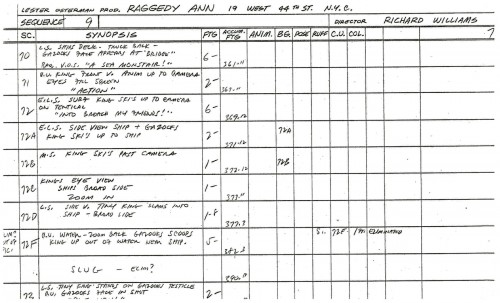 LESTER OSTERMAN PROD. RAGGEDY ANN 19 WEST 44TH ST. N.Y.C.
SEQUENCE 9 DIRECTOR RICHARD WILLIAMS
SC. SYNOPSIS FTG ACCUM. FTG. ANIM. BG. POSE RUFF C.U. COL. 7
70 L.S. SHIP DECK - TRUCK BACK - 6-
GAZOOKS FACE APPEARS AT "BRIDGE"
"A SEA MONSTAIR!"
71 C.U KING FRONT V. ANIM UP TO CAMERA 2-
EYES FILL SCREEN
"ACTION"
72 E.L.S. KING SKI'S UP TO CAMERA 6-
ON TENTICAL
"INTO BREACH MY FRIENDS!" 369.12
72A E.L.S. SIDE VIEW SHIP + GAZOOKS 2- 72A
KING SKI'S UP TO SHIP 371.12
72B M.S. KING SKI'S PAST CAMERA 1- 72B
372.12
72C KING'S EYE VIEW 1-
SHIPS BROAD SIDE
ZOOM IN
72D L.S. SIDE V. TINY KING SLAMS INTO 1-8
SHIP - BROAD SIDE 377.3
72F C.U. WATER - ZOOM BACK GAZOOKS SCOOPS 5- S. 72F - ELIMINATED
KING UP OUT OF WATER NEAR SHIP. 382.3
SLUG - ELIM?
73 L.S. TINY KING STANDS ON GAZOOKS TESTICLE 2-
B.U. GAZOOKS FACE IN SHOT